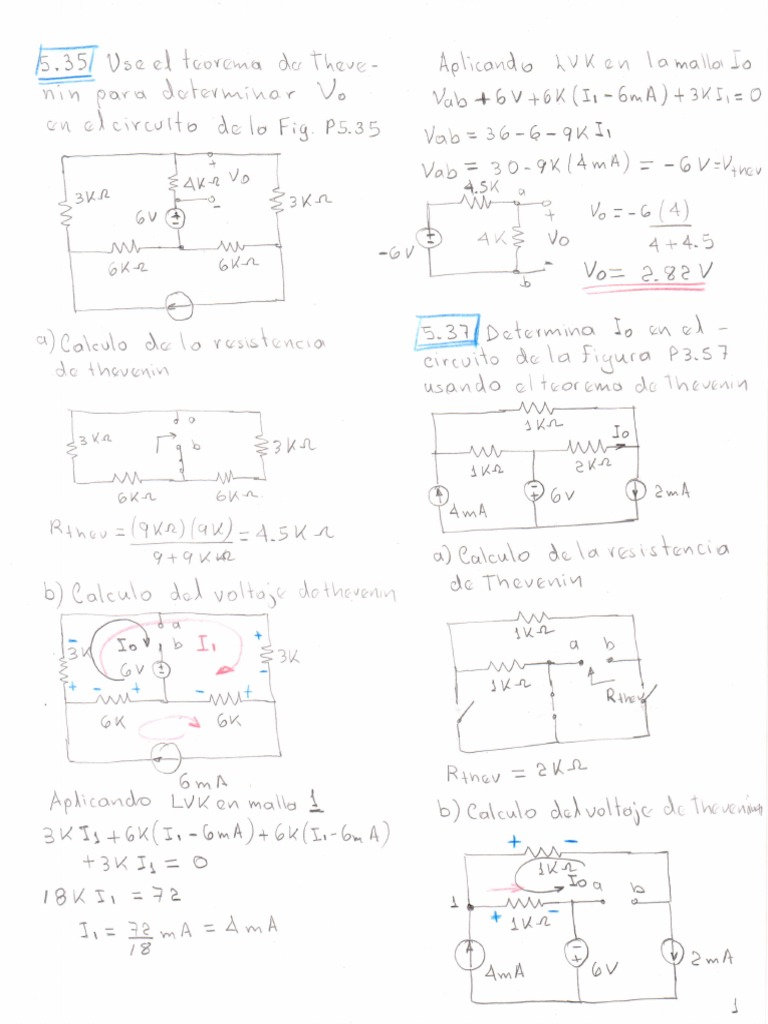 5.35 Use el teorema de Theve-
nin para determinar Vo
en el circuito de la Fig. P5.35
3KΩ
4KΩ
+
Vo
-
3KΩ
6V
6KΩ
6KΩ
a) Calculo de la resistencia
de thevenin
3KΩ
a
b
3KΩ
6KΩ
6KΩ
Rthev = (9KΩ)(9K) = 4.5KΩ
9+9KΩ
b) Calculo del voltaje de thevenin
a
3K
Io
b
I1
6V
3K
6K
6K
6mA
Aplicando LVK en malla 1
3K I1 + 6K(I1-6mA) + 6K(I1-6mA)
+3K I1 = 0
18K I1 = 72
I1 = 72 mA = 4mA
18
Aplicando LVK en la malla Io
Vab + 6V + 6K(I1-6mA) + 3K I1 = 0
Vab = 36-6-9K I1
Vab = 30-9K(4mA) = -6V = Vthev
4.5K
a
+
4K
Vo
-
-6V
b
Vo = -6(4)
4+4.5
Vo = 2.82V
5.37 Determina Io en el -
circuito de la figura P3.57
usando el teorema de Thevenin
1KΩ
Io
1KΩ
2KΩ
4mA
6V
2mA
a) Calculo de la resistencia
de Thevenin
1KΩ
a
b
1KΩ
Rthev
Rthev = 2KΩ
b) Calculo del voltaje de Thevenin
+
-
1KΩ
Io
a
b
1
+
-
1KΩ
4mA
6V
2mA
1